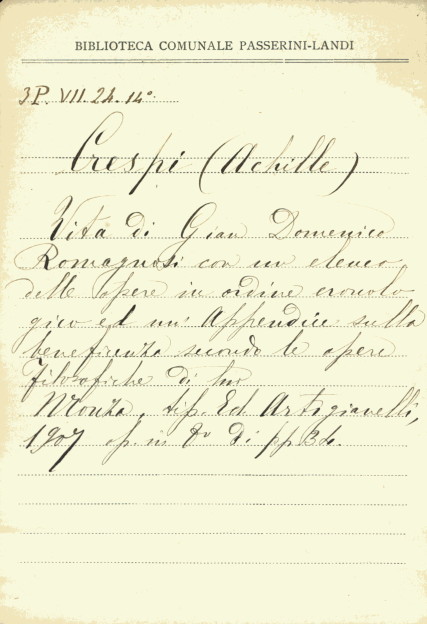 BIBLIOTECA COMUNALE PASSERINI-LANDI
3P. VII. 24. 14º
Crespi (Achille)
Vita di Gian Domenico
Romagnosi con un elenco
delle opere in ordine cronolo
gico ed un' Appendice sulla
beneficenza secondo le opere
filosofiche di lui
Monza, tip. Ed Artigianelli,
1907 op. in 8º di pp 34.